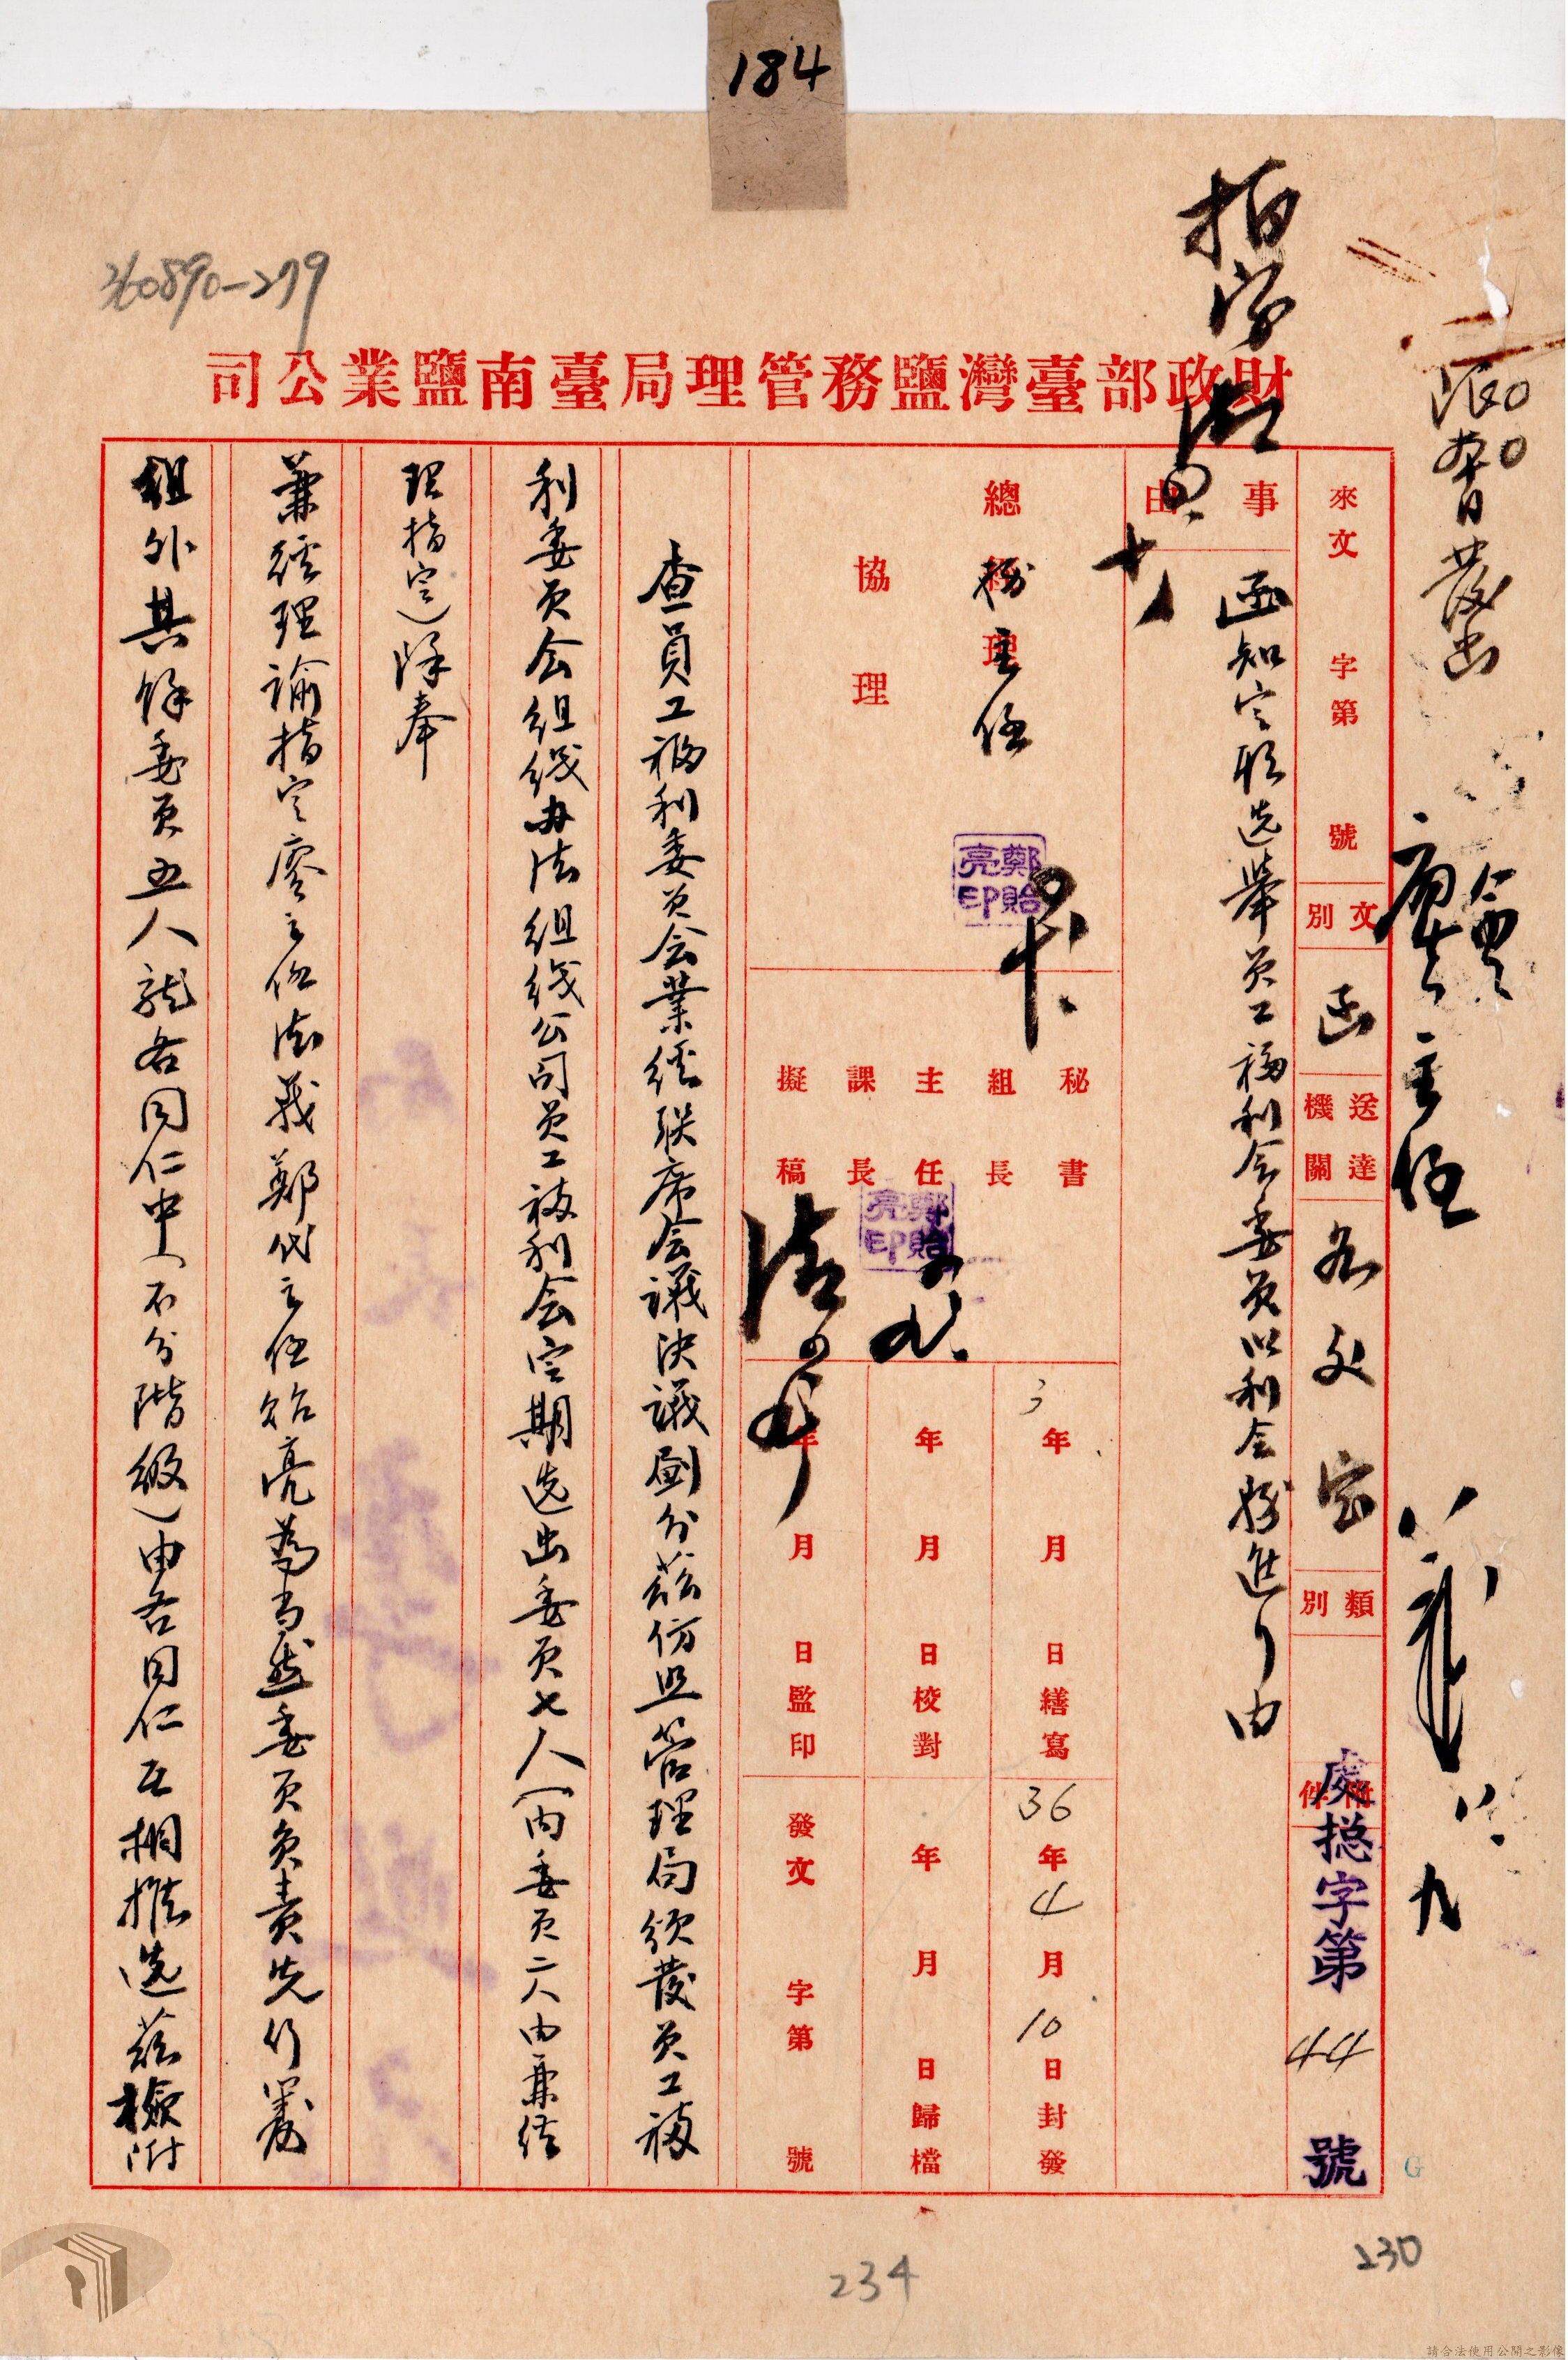 184
260890-279
財政部臺灣鹽務管理局臺南鹽業公司
限本日發出
會
廖主任
九
來文 字第 號
文別 函
送達機關 各文宅
類別
附件
處摠字第 44 號
事由
函知定期選舉員工福利会委員以利会務進行由
拍字
總經理
協理
主任
鄭貽亮印
秘書
組長
主任
課長
擬稿
鄭貽亮印
3 年 月 日繕寫
年 月 日校對
年 月 日監印
36 年 4 月 10 日封發
年 月 日歸檔
發文 字第 號
查員工福利委員会業經联席会議決議劃分茲仿照管理局頒發員工福
利委員会組織办法組織公司員工福利会定期選出委員七人(內委員二人由兼經
理指定)除奉
兼經理諭指定廖主任法義鄭代主任貽亮為当然委員負責先行籌
組外其餘委員五人就各同仁中(不分階級)由各同仁互相推選茲檢附
234
230
G
請合法使用公開之影像